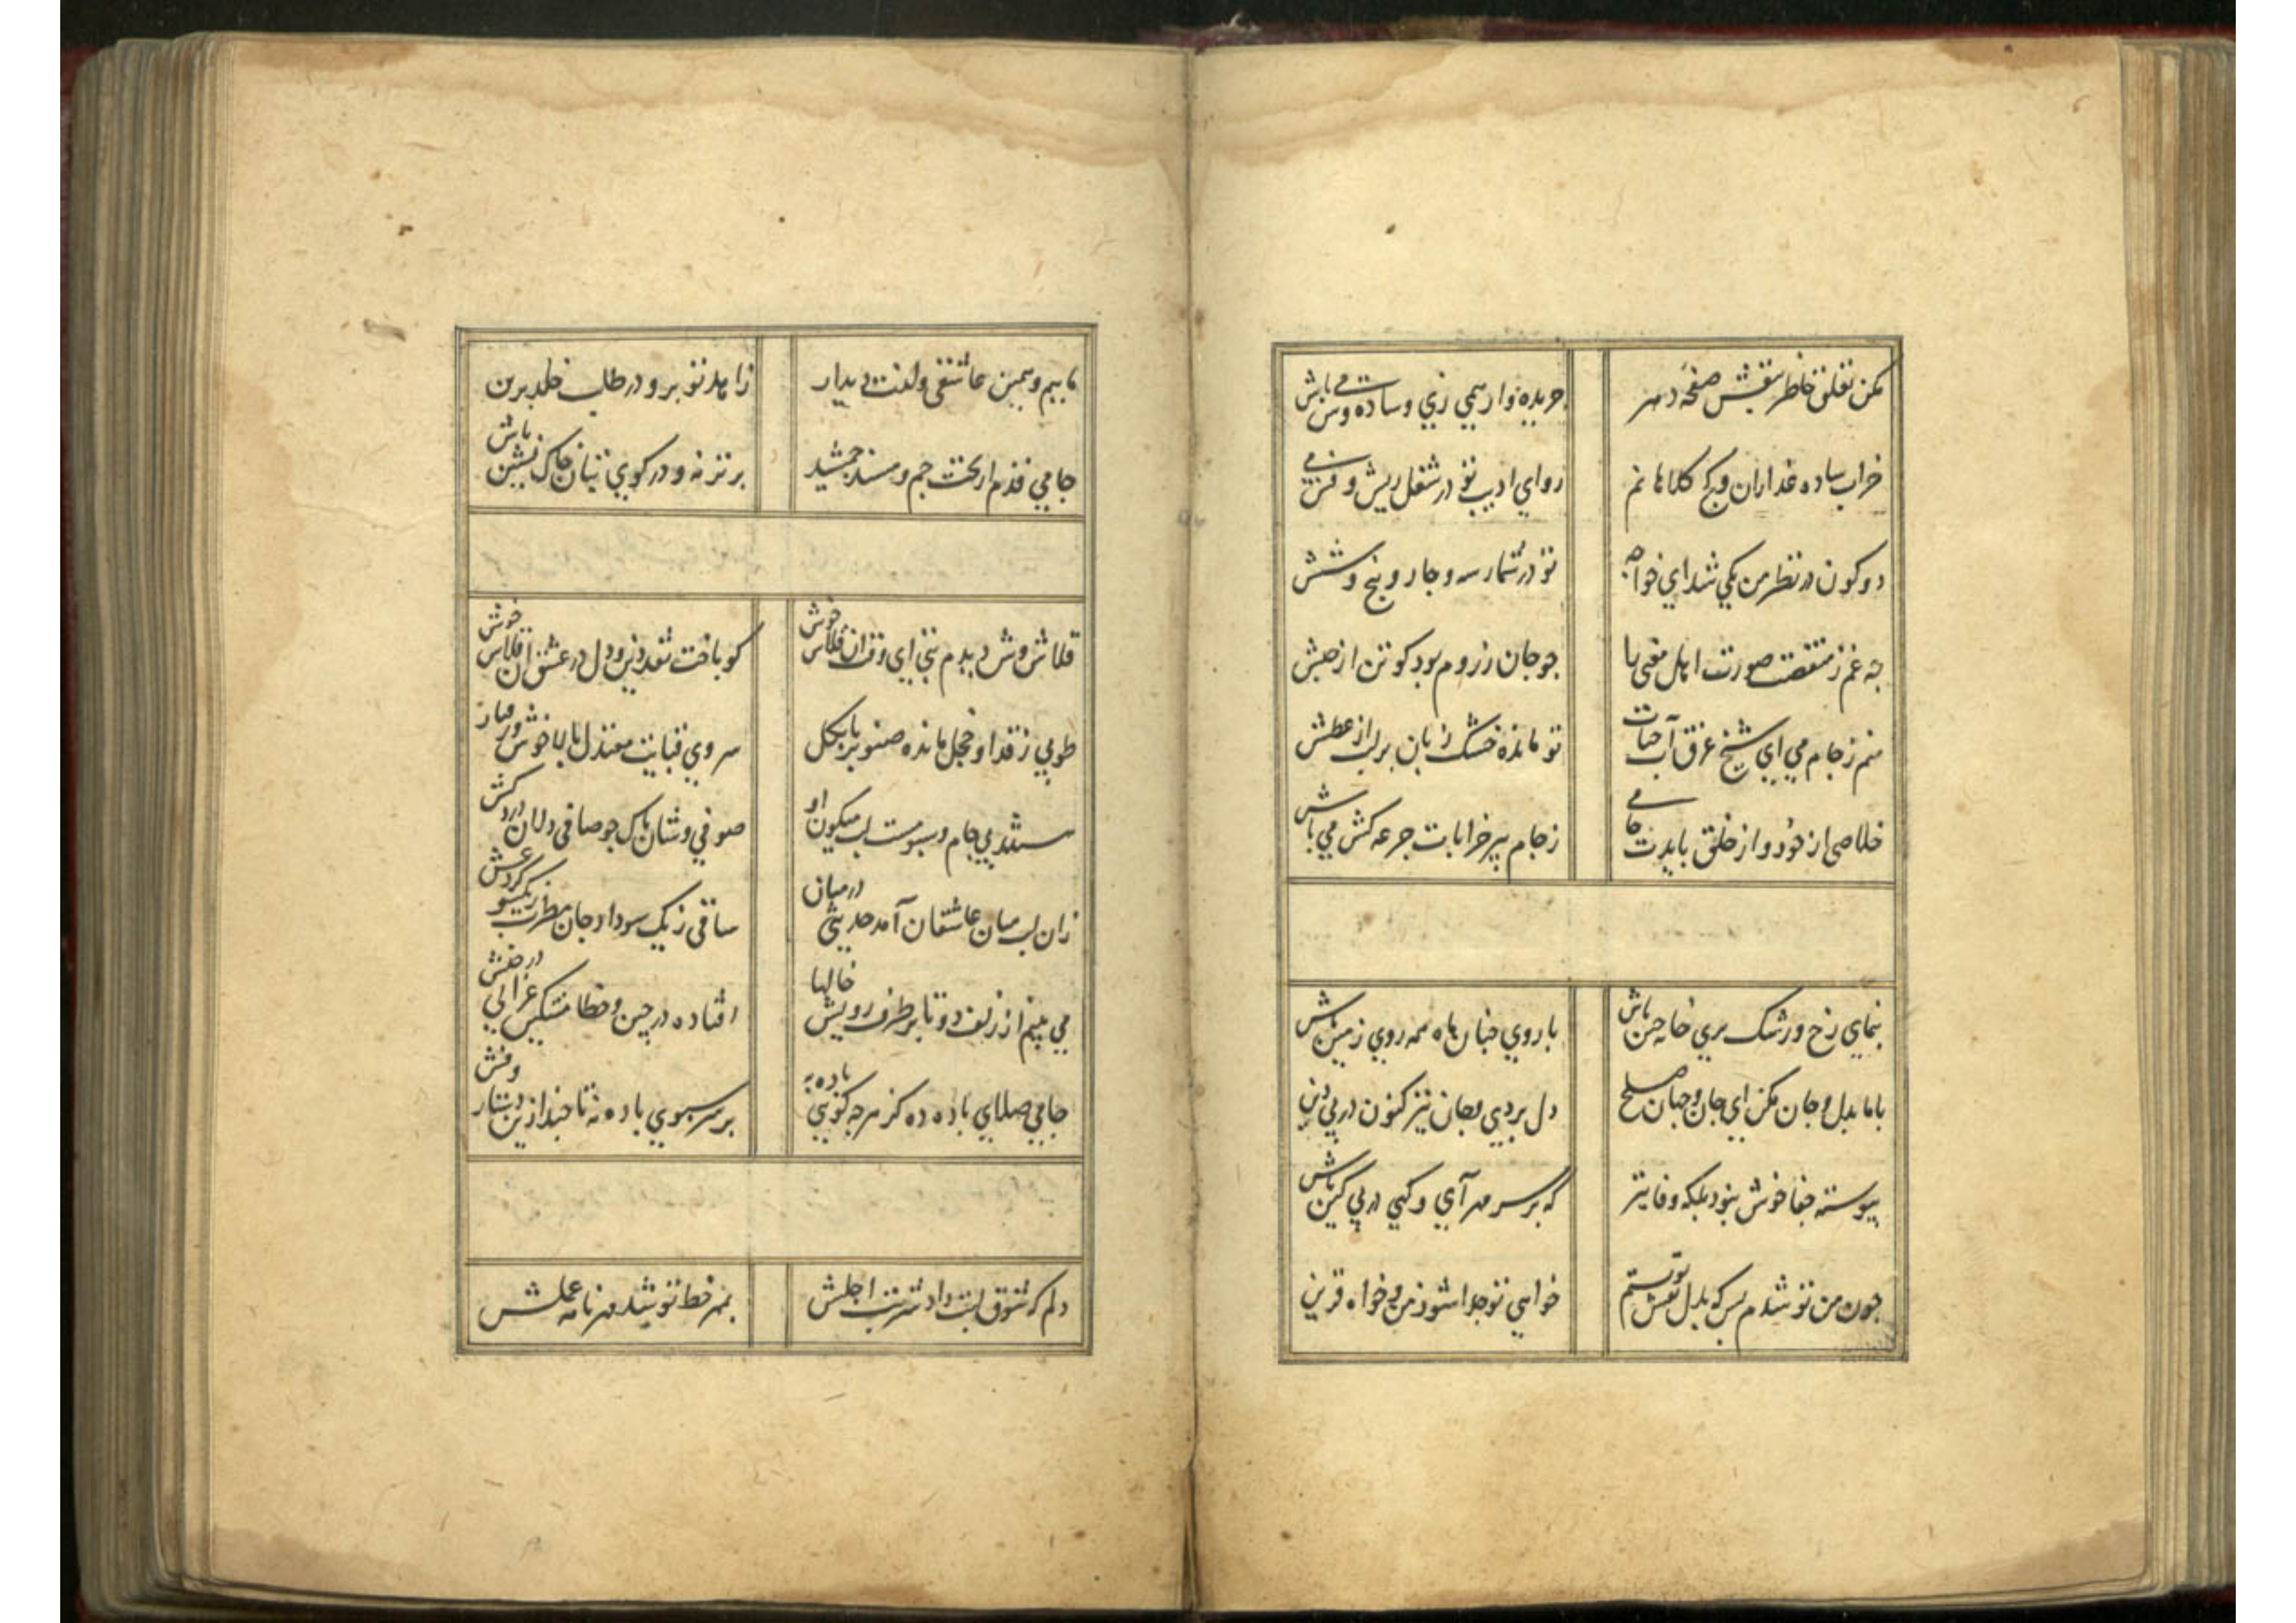 مکن تعلق خاطر بنقش صفحه دهر
جریده وار همی زی و ساده وش می باش
خراب ساده عذاران و کج کلاهانم
رو ای ادیب تو در شغل ریش و فش می
دو کون در نظر من یکی شد ای خواجه
تو در شمار سه و چار و پنج و شش
چه غم ز منقصت صورت اهل معنی را
چو جان ز روم بود کو تن از حبش
منم ز جام می ای شیخ غرق آب حیات
تو مانده خشک زبان بر لب از عطش
خلاصی از خود و از خلق بایدت جامی
ز جام پیر خرابات جرعه کش می باش
بنمای رخ و رشک پری خانه چین باش
با روی چنان ماه همه روی زمین باش
با ما بدل و جان مکن ای جان و جهان صلح
دل بردی و جان نیز کنون در پی دین
پیوسته جفا خوش نبود بلکه وفا نیز
که بر سر مهر آی و گهی در پی کین باش
چون من تو شدم بس که بدل نقش تو بستم
خواهی تو جدا شو ز من و خواه قرین
ماییم و همین عاشقی و لذت دیدار
زاهد تو برو در طلب خلد برین باش
جامی قدم از تخت جم و مسند جمشید
برتر نه و در کوی بتان خاک نشین
قلاش وش دیدم بتی ای وقت آن قلاش خوش
کو باخت نقد دین و دل در عشق آن قلاش خوش
طوبی ز قد او خجل مانده صنوبر پا بگل
سروی قباپت معتدل بالاخوش و رفتار
ستند بی جام و سبو مست لب میگون او
صوفی وشان پاک جو صافی دلان درد کش
زان لب میان عاشقان آمد حدیثی در میان
ساقی ز یک سو داد جان مطرب ز یک سو کرد غش
می بینم از زلف دوتا بر طرف رویش خالها
افتاده در چین و خطا مشکین غزالی در حبش
جامی صلای باده ده کز هر چه گویی باده به
بر سر سبوی باده نه تا چند ازین دستار و فش
دلم که شوق لبت داد شربت اجلش
بمهر خط تو شد مهر نامه عملش